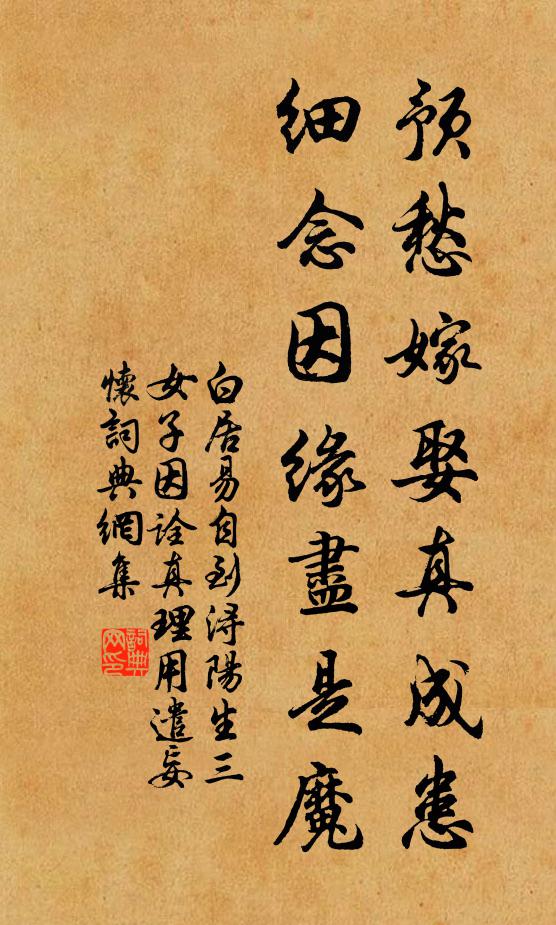 預愁嫁娶真成患
細念因緣盡是魔
白居易自到潯陽生三
女子因詮真理用遣妄
懷詞典網集
詞典
网印